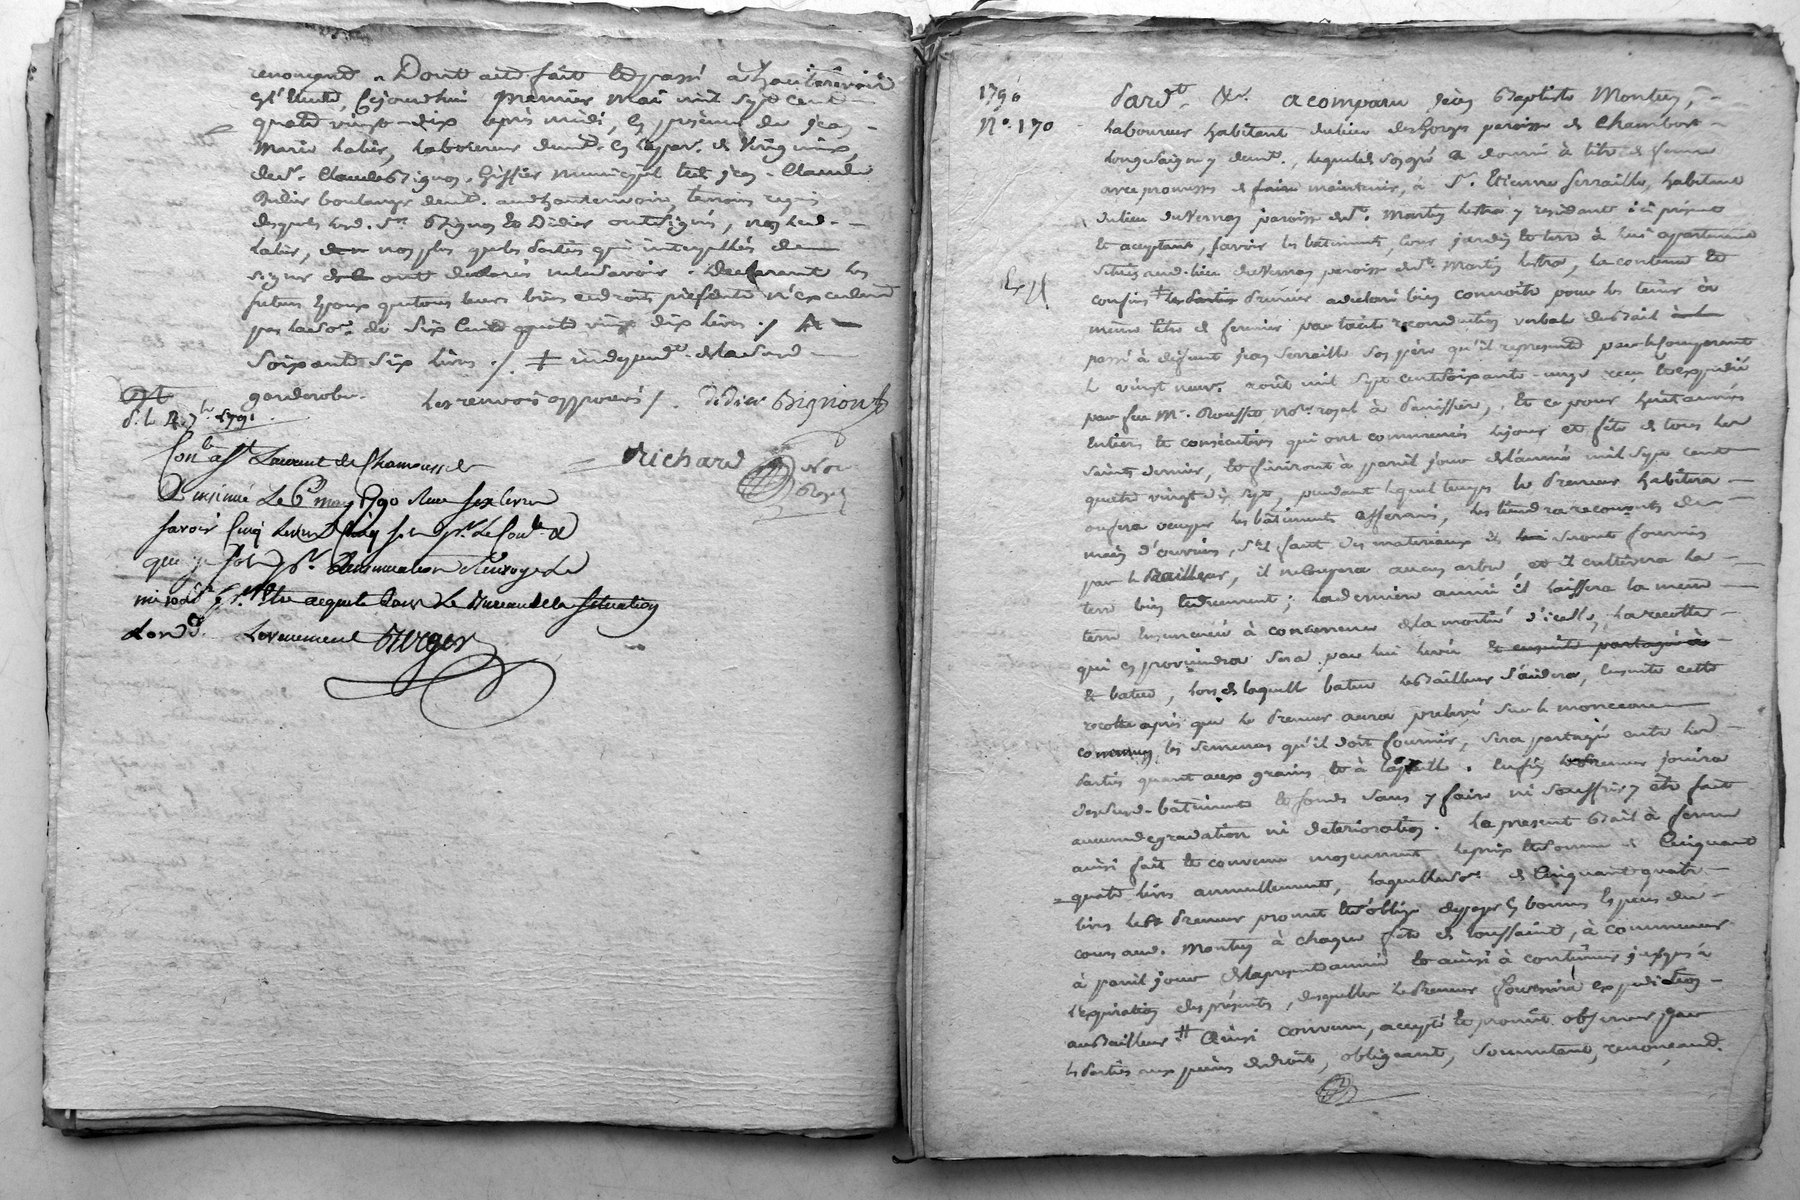 renonçant. Dont acte fait et passé à hauterivoir
et Etude, cejourdhui premier mai mil sept cent
quatre vingt-dix après midi, en présence de jean
Marie laber, laboureur demt. en la par. de
demt. Claude Bignon, greffier municipal et jean-Claude
Didier boulanger demt. aud. hauterivoir, témoins requis
desquels lesd. srs. Bignon et Didier ont signé, non led.
laber, non plus que les parties qui interpellés de
signer ont déclarés ne le savoir. Declarant les
futurs époux que tous leurs biens et droits présents n'excedent
pas la so. de six cent quatre vingt dix livres ./.
soixante six livres ./. ‡ independt. de la susd.
garderobe. Les renvois approuvés /. Didier Bignon
d. le 4. 7bre 1791
Conlé. à St. Laurent de Chamousset
richard Nore.
Royal
& insinué le 6e may 1790 reçu six livres
savoir cinq livres cinq sols pr. le conle. &
que je sols pr. l'insinuation
pr. être acquitté dans le Bureau de la situation
dont d. Leversement Burger
1790
N°. 170
Pardt. &a. a comparu jean Baptiste Montey,
laboureur habitant du lieu des gorges paroisse de Chambost
longesaigne y demt., lequel de son gré a donné à titre de ferme
avec promesses de faire maintenir, à Sr. Etienne Ferraille, habitant
du lieu du Vernay paroisse de St. Martin lestra y residant ici présent
et acceptant, savoir les bâtiments, cour, jardin et terre à lui apartenant
situés aud. lieu du Vernay paroisse de St. Martin lestra, la contenue et
confins ‡ les parties preneur a declaré bien connoitre pour les tenir à
même titre de fermier par tacite reconduction verbale du bail
passé à défunt jean Ferraille son père qu'il represente par le comparant
le vingt neuf août mil sept cent soixante-onze reçu et expédié
par feu Me. Rousset nore. royal à Panissière, et ce pour huit années
entieres et consécutives qui ont commencés le jour et fête de tous les
saints dernier, et finiront à pareil jour de l'année mil sept cent
quatre vingt dix sept, pendant lequel temps le preneur habitera
ou fera occuper les bâtiments afferms, les tiendra recouverts de
main d'ouvrier, s'il faut des materiaux ils seront fournis
par le Bailleur, il ne coupera aucun arbre, et il cultivera la
terre bien et duement; la derniere année il laissera la même
terre ensemencée à concurrence de la moitié d'icelle, la recolte
qui en proviendra sera par lui levée et ensuite partagée à
& battue, lors de laquelle battue le Bailleur s'aidera, ensuite cette
recolte après que le preneur aura prelevé sur le monceau
commun les semences qu'il doit fournir, sera partagée entre les
parties quant aux grains et à la paille. Enfin le preneur jouira
desdits bâtiments et fonds sans y faire ni souffrir y être fait
aucune degradation ni deterioration. Le present Bail à ferme
ainsi fait et convenu moyennant le prix et somme de Cinquante
quatre livres annuellement, laquelle so. de Cinquante quatre
livres led. preneur promet et s'oblige de payer en bonnes espèces du
cours aud. Montey à chaque fête de toussaint, à commencer
à pareil jour de la presente année et ainsi à continuer jusqu'à
l'expiration des présentes, desquelles le Preneur fournira expedition
au Bailleur ‡‡ Ainsi convenu, accepté et promis observer par
les parties aux peines de droit, obligeant, soumettant, renonçant.